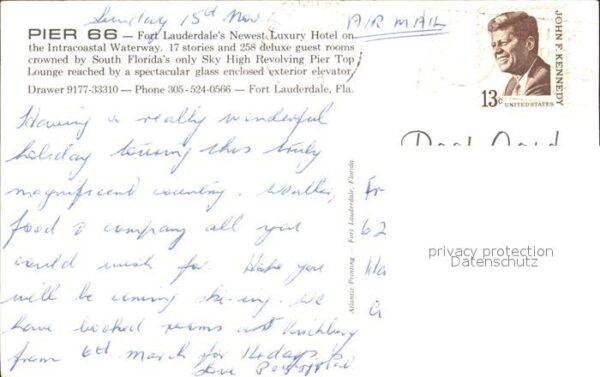 Sunday 15th Nov.
AIR MAIL
PIER 66 — Fort Lauderdale's Newest Luxury Hotel on
the Intracoastal Waterway. 17 stories and 258 deluxe guest rooms
crowned by South Florida's only Sky High Revolving Pier Top
Lounge reached by a spectacular glass enclosed exterior elevator.
Drawer 9177-33310 — Phone 305-524-0566 — Fort Lauderdale, Fla.
JOHN F. KENNEDY
13c UNITED STATES
Post Card
Having a really wonderful
holiday touring this truly
magnificent country. Weather,
food & company all you
could wish for. Hope you
will be coming ski-ing. We
have booked rooms at Kirchberg
from 6th March for 14 days.
Love
Atlantic Printing - Fort Lauderdale, Florida
Fr
62
Ha
a
privacy protection
Datenschutz